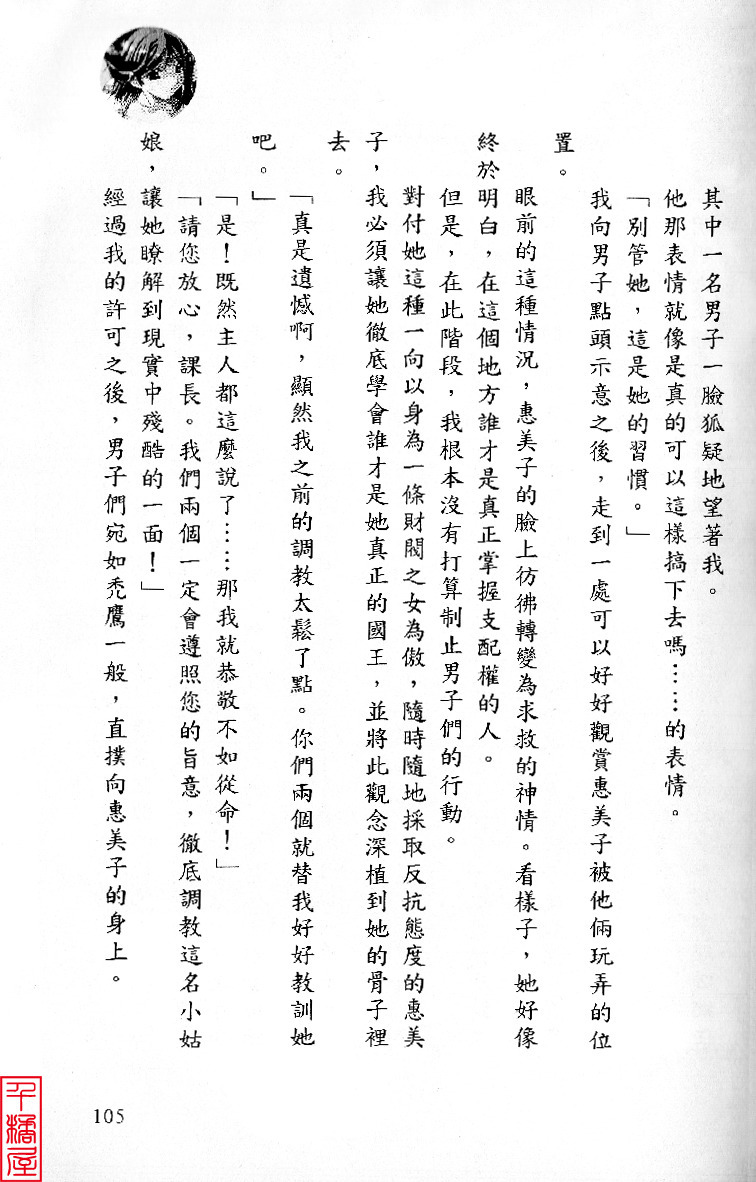 其中一名男子一臉狐疑地望著我。
他那表情就像是真的可以這樣搞下去嗎……的表情。
「別管她，這是她的習慣。」
我向男子點頭示意之後，走到一處可以好好觀賞惠美子被他倆玩弄的位
置。
眼前的這種情況，惠美子的臉上彷彿轉變為求救的神情。看樣子，她好像
終於明白，在這個地方誰才是真正掌握支配權的人。
但是，在此階段，我根本沒有打算制止男子們的行動。
對付她這種一向以身為一條財閥之女為傲，隨時隨地採取反抗態度的惠美
子，我必須讓她徹底學會誰才是她真正的國王，並將此觀念深植到她的骨子裡
去。
「真是遺憾啊，顯然我之前的調教太鬆了點。你們兩個就替我好好教訓她
吧。」
「是！既然主人都這麼說了……那我就恭敬不如從命！」
「請您放心，課長。我們兩個一定會遵照您的旨意，徹底調教這名小姑
娘，讓她瞭解到現實中殘酷的一面！」
經過我的許可之後，男子們宛如禿鷹一般，直撲向惠美子的身上。
105